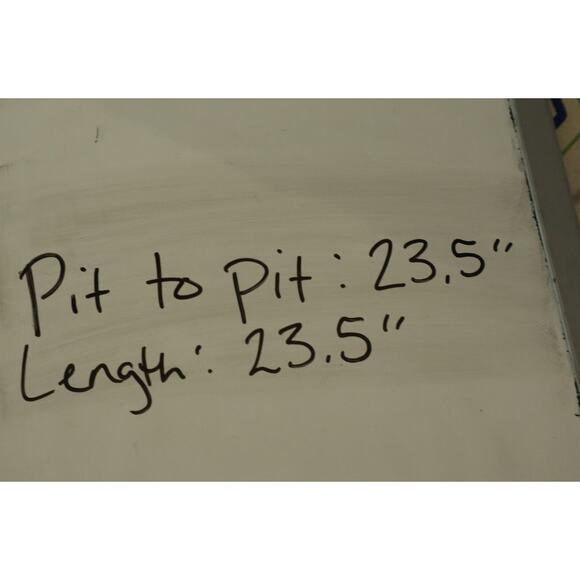 Pit to pit: 23.5"
Length: 23.5"